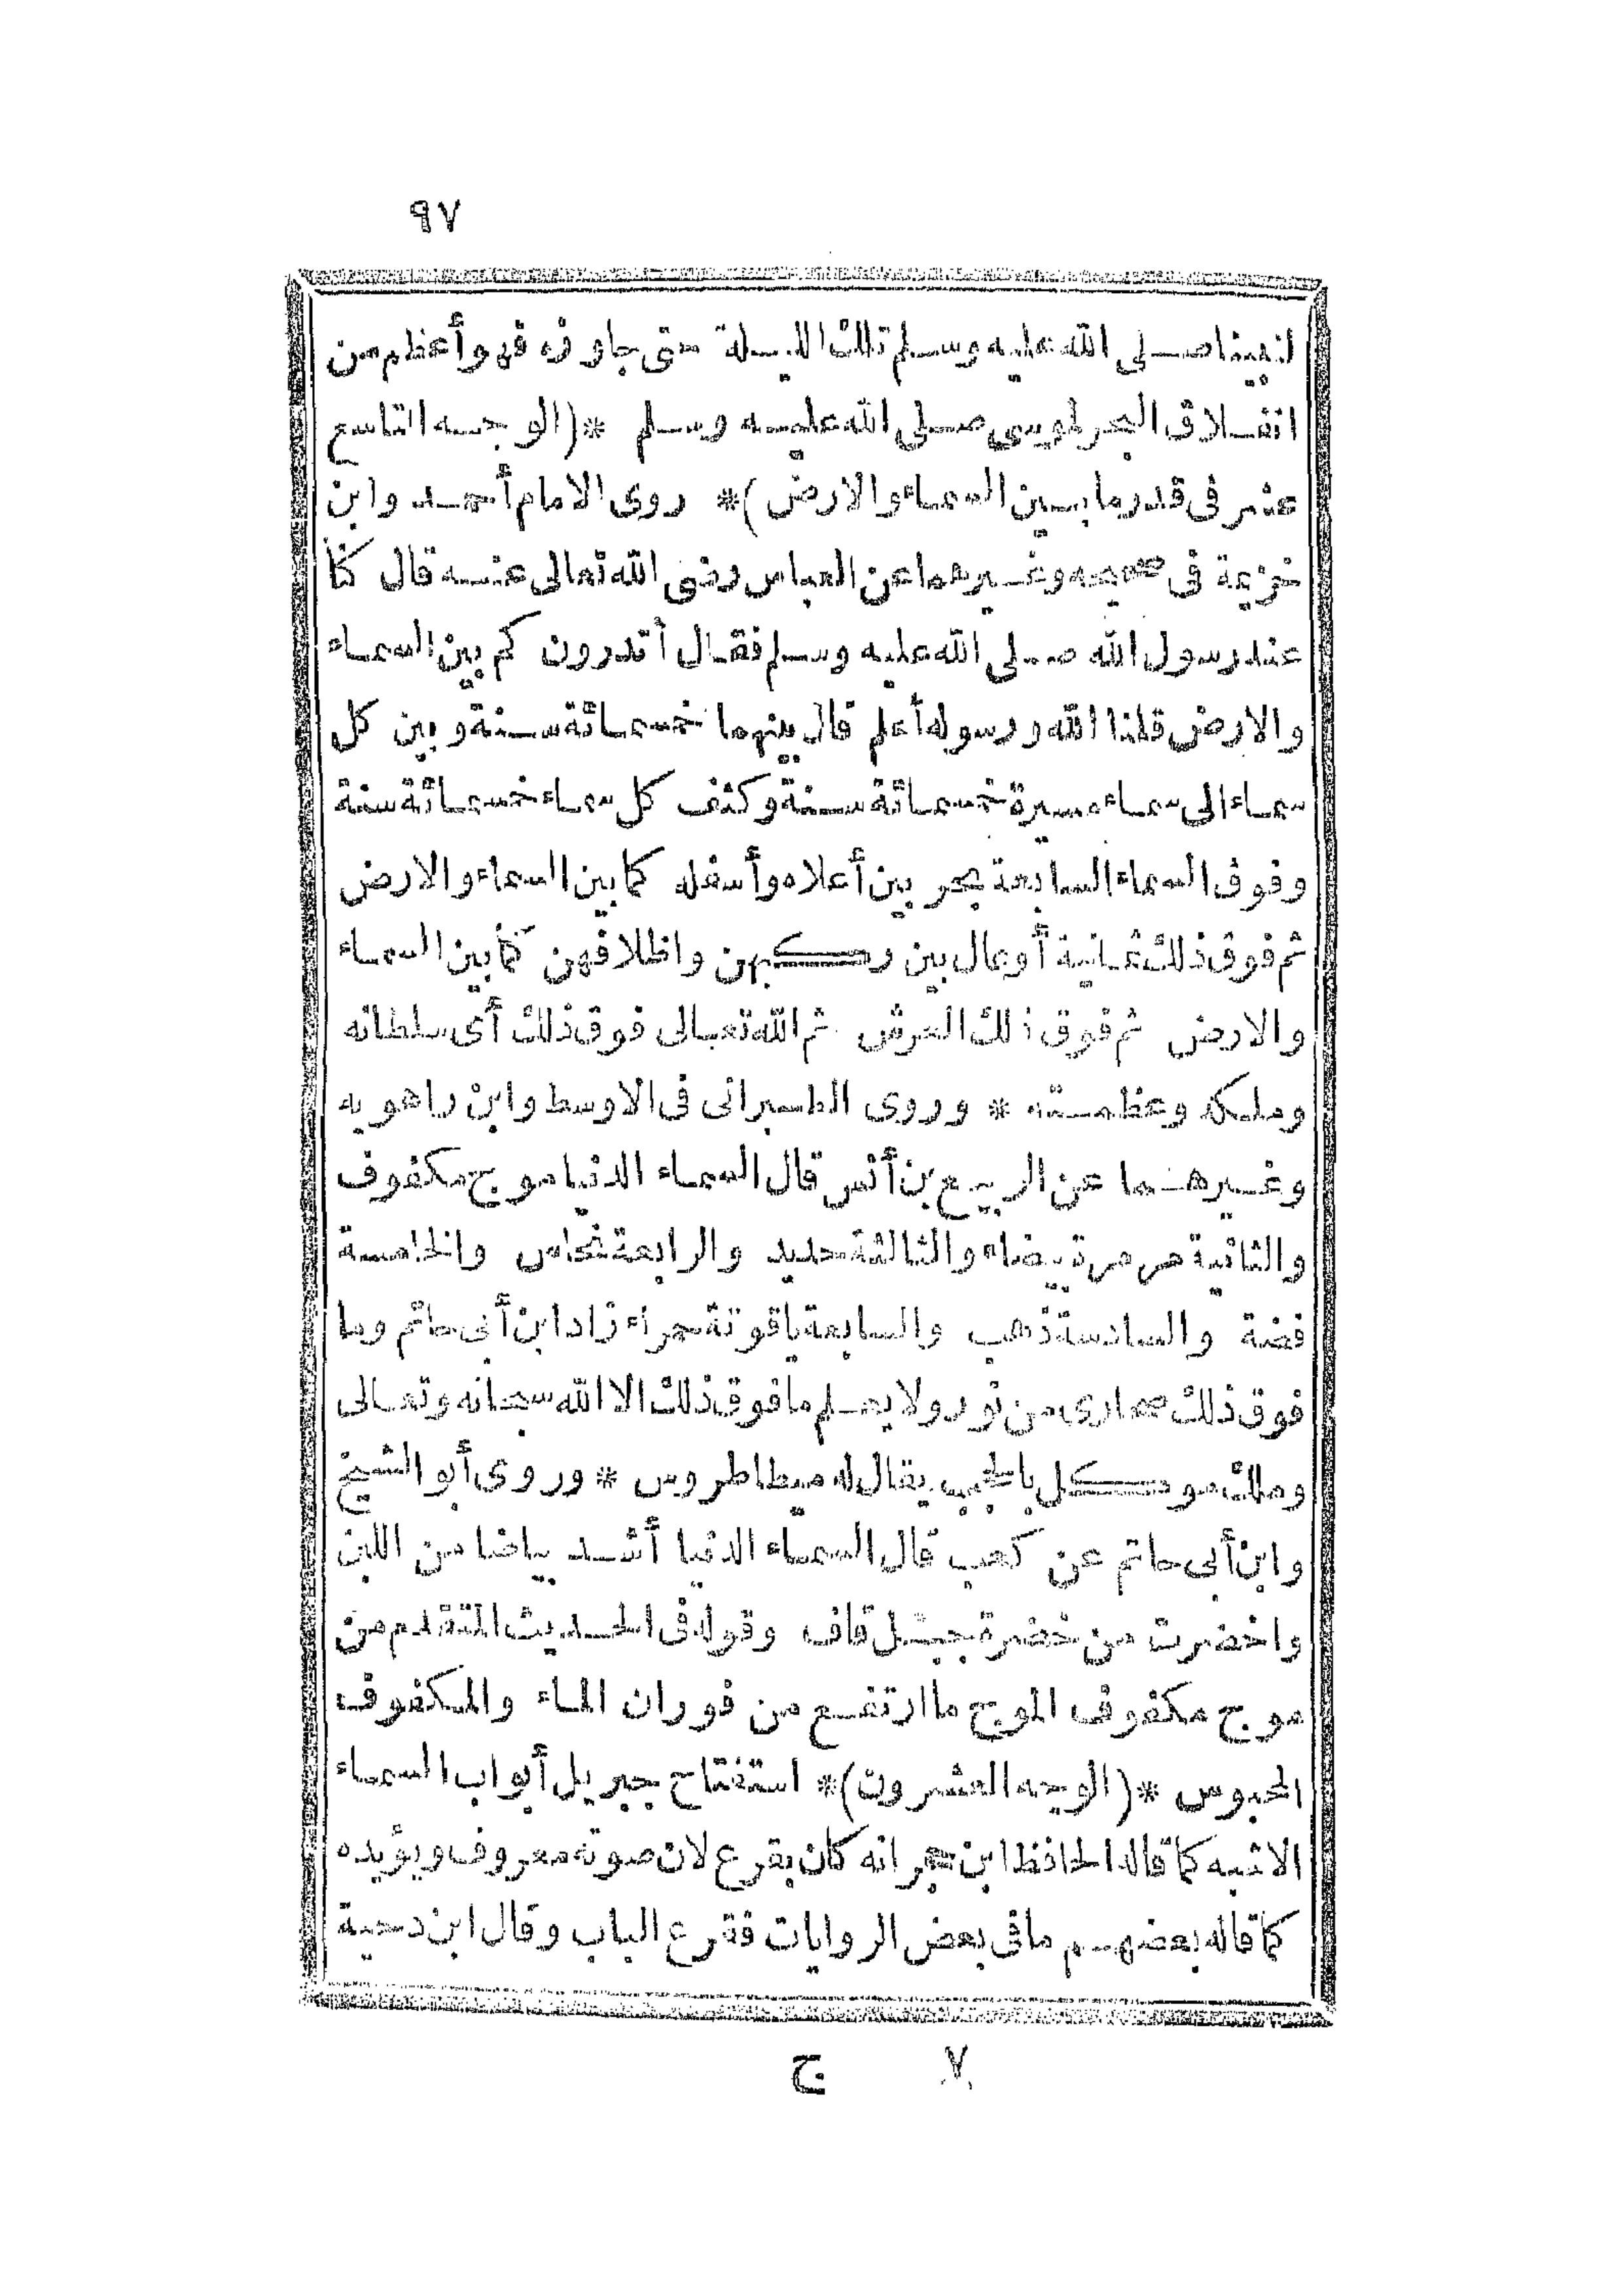 ٩٧
لنبينا صلى الله عليه وسلم تلك الليلة حتى جاوزه فهو أعظم من
انفلاق البحر لموسى صلى الله عليه وسلم * (الوجه التاسع
عشر فى قدر ما بين السماء والارض) * روى الامام أحمد وابن
خزيمة فى صحيحه وغيرهما عن العباس رضى الله تعالى عنه قال كنا
عند رسول الله صلى الله عليه وسلم فقال أتدرون كم بين السماء
والارض قلنا الله ورسوله أعلم قال بينهما خمسمائة سنة وبين كل
سماء الى سماء مسيرة خمسمائة سنة وكثف كل سماء خمسمائة سنة
وفوق السماء السابعة بحر بين أعلاه وأسفله كما بين السماء والارض
ثم فوق ذلك ثمانية أوعال بين ركبهن واظلافهن كما بين السماء
والارض ثم فوق ذلك العرش ثم الله تعالى فوق ذلك أى سلطانه
وملكه وعظمته * وروى الطبرانى فى الاوسط وابن راهويه
وغيرهما عن الربيع بن أنس قال السماء الدنيا موج مكفوف
والثانية مرمرة بيضاء والثالثة حديد والرابعة نحاس والخامسة
فضة والسادسة ذهب والسابعة ياقوتة حمراء زاد ابن أبى حاتم وما
فوق ذلك صحارى من نور ولا يعلم ما فوق ذلك الا الله سبحانه وتعالى
وملك موكل بالحجب يقال له ميطاطروس * وروى أبو الشيخ
وابن أبى حاتم عن كعب قال السماء الدنيا أشد بياضا من اللبن
واخضرت من خضرة جبل قاف وقوله فى الحديث المتقدم من
موج مكفوف الموج ما ارتفع من فوران الماء والمكفوف
المحبوس * (الوجه العشرون) * استفتاح جبريل أبواب السماء
الاشبه كما قاله الحافظ ابن حجر انه كان بقرع لان صوته معروف ويؤيده
كما قاله بعضهم ما فى بعض الروايات فقرع الباب وقال ابن دحية
٧ ج